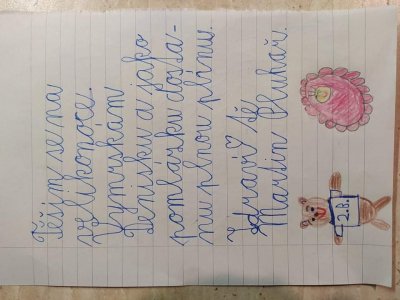 Těším se na
velikonoce.
Vymrskám
Denisku a jako
pomlázku dosta-
nu plnou plínu.
Zdraví Tě
Martin
2.B.